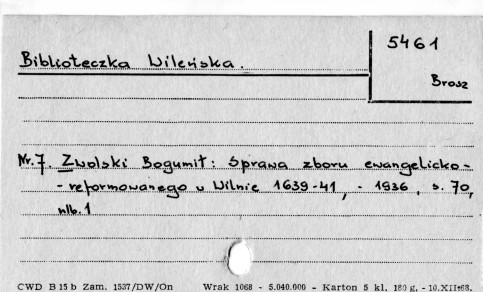 5461
Biblioteczka Wileńska.
Brosz
Nr.7. Zwolski Bogumił: Sprawa zboru ewangelicko-
-reformowanego w Wilnie 1639-41, - 1936, s. 70,
nlb. 1
CWD B 15 b Zam. 1537/DW/On Wrak 1068 - 5.040.000 - Karton 5 kl. 180 g. - 10.XII.68.